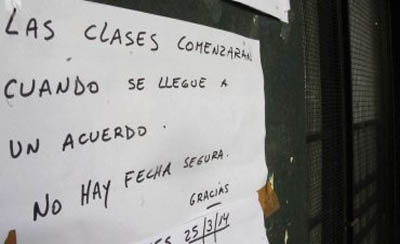 LAS CLASES COMENZARÁN
CUANDO SE LLEGUE A
UN ACUERDO.
NO HAY FECHA SEGURA.
GRACIAS
25/3/14